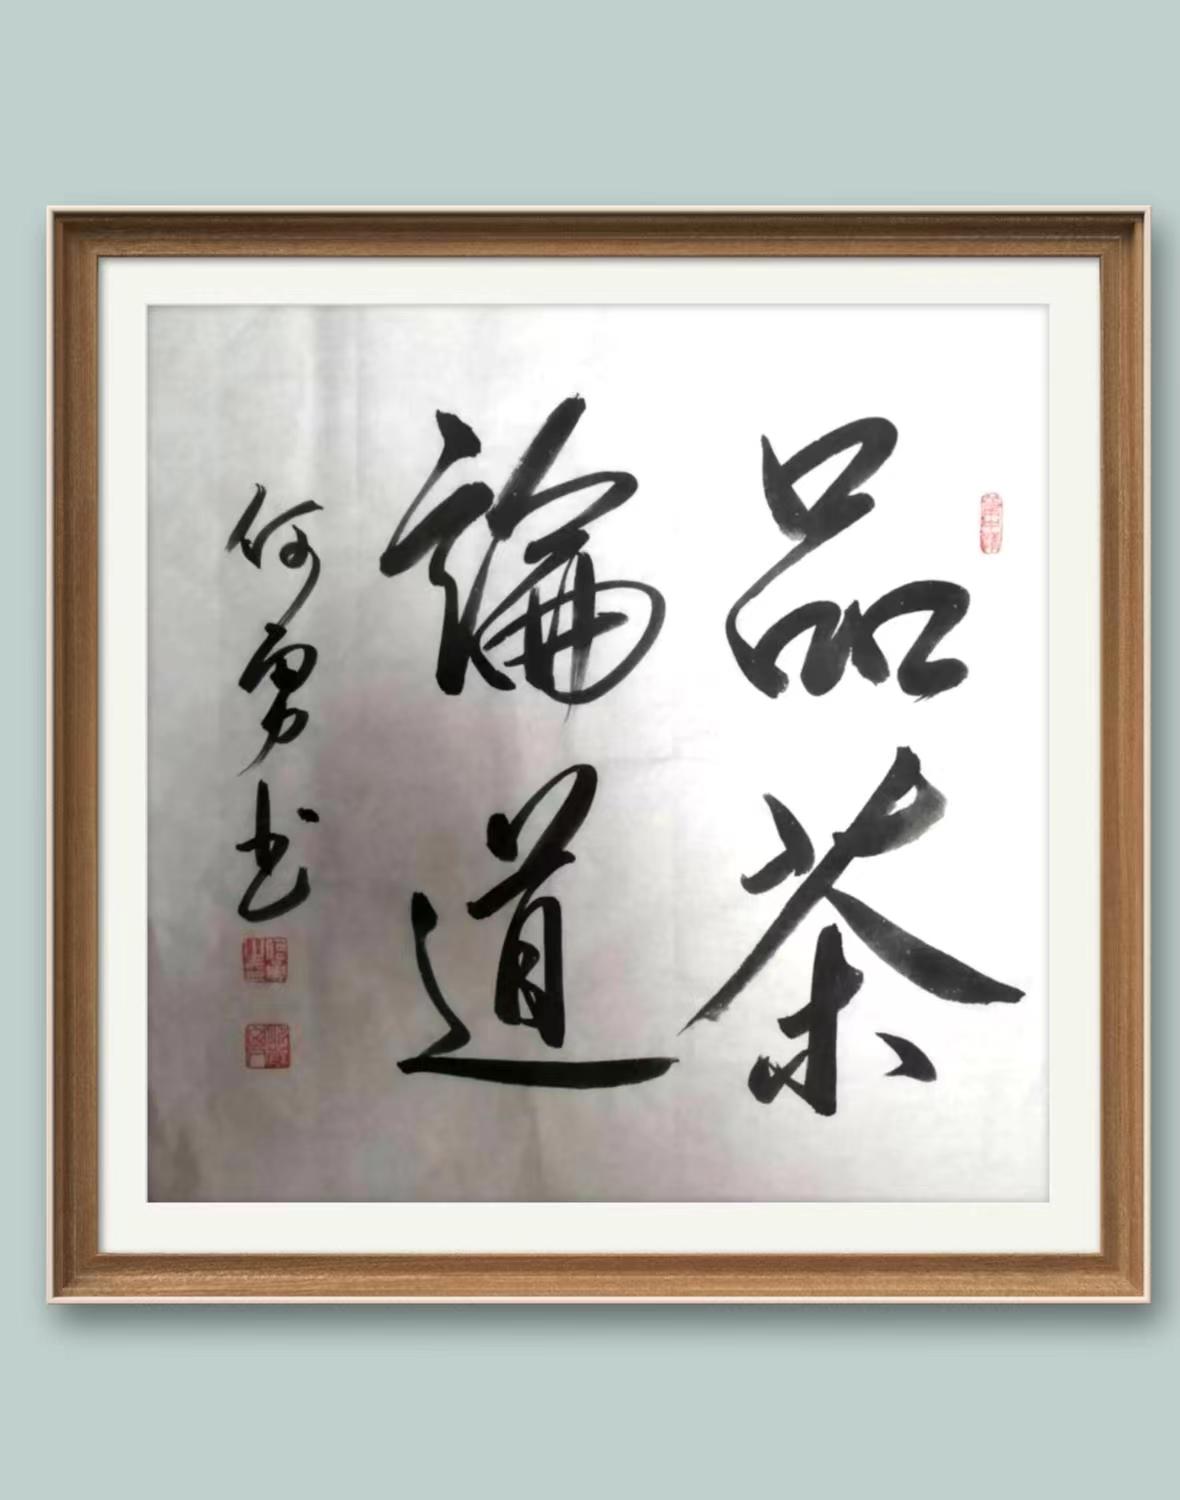 品茶
論道
何勇书